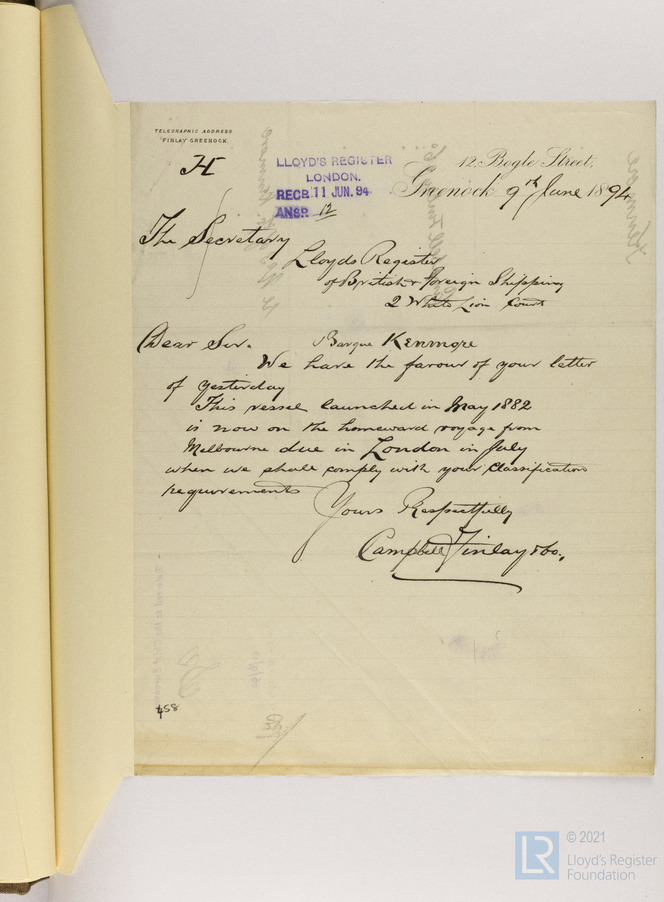 TELEGRAPHIC ADDRESS
"FINLAY GREENOCK.
H
LLOYD'S REGISTER
LONDON.
RECD 11 JUN. 94
ANSD. 12
12, Bogle Street,
Greenock 9th June 1894
The Secretary
Lloyds Register
of British & Foreign Shipping
2 White Lion Court
Dear Sir.
Barque Kenmore
We have the favour of your letter
of yesterday
This vessel launched in May 1882
is now on the homeward voyage from
Melbourne due in London in July
when we shall comply with your Classification
requirements
Yours Respectfully
Campbell Finlay & Co.,
458
© 2021
LR
Lloyd's Register
Foundation